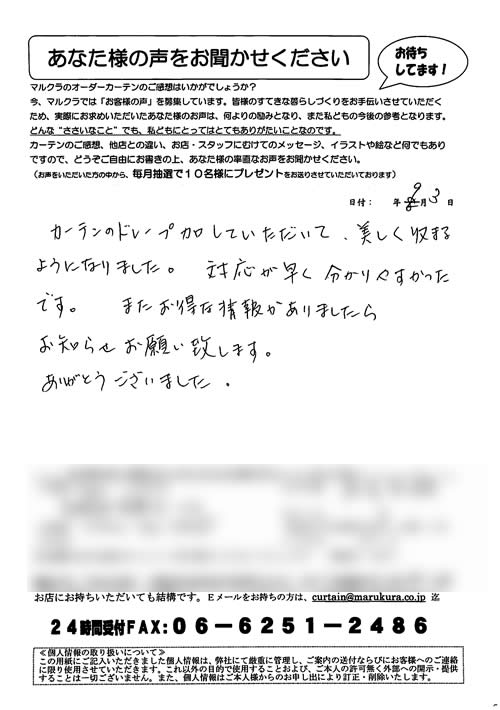 あなた様の声をお聞かせください
お待ち
してます！
マルクラのオーダーカーテンのご感想はいかがでしょうか？
今、マルクラでは「お客様の声」を募集しています。皆様のすてきな暮らしづくりをお手伝いさせていただく
ため、実際にお求めいただいたあなた様のお声は、何よりの励みとなり、また私どもの今後の参考となります。
どんな“ささいなこと”でも、私どもにとってはとてもありがたいことなのです。
カーテンのご感想、他店との違い、お店・スタッフにむけてのメッセージ、イラストや絵など何でもあり
ですので、どうぞご自由にお書きの上、あなた様の率直なお声をお聞かせください。
（お声をいただいた方の中から、毎月抽選で１０名様にプレゼントをお送りさせていただいております）
日付： 年 9月 3 日
カーテンのドレープ加していただいて、美しく収まる
ようになりました。 対応が早く 分かりやすかった
です。 またお得な情報がありましたら
お知らせ お願い致します。
ありがとうございました。
お店にお持ちいただいても結構です。Ｅメールをお持ちの方は、curtain@marukura.co.jp 迄
２４時間受付ＦＡＸ：０６－６２５１－２４８６
≪個人情報の取り扱いについて≫
この用紙にご記入いただきました個人情報は、弊社にて厳重に管理し、ご案内の送付ならびにお客様へのご連絡
に限り使用させていただきます。これ以外の目的で使用することおよび、ご本人の許可無く外部への開示・提供
することは一切ございません。また、個人情報はご本人様からのお申し出により訂正・削除いたします。